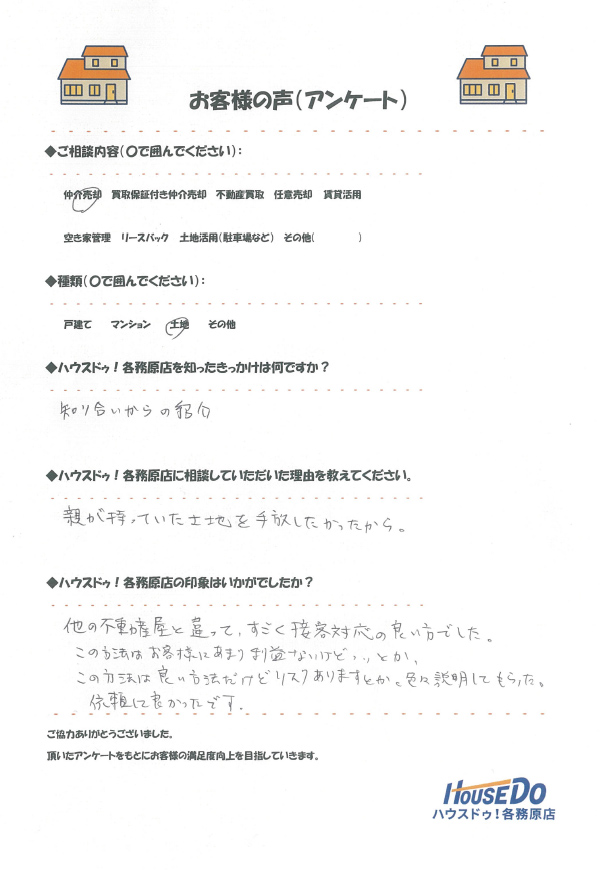 お客様の声(アンケート)
◆ご相談内容(〇で囲んでください):
仲介売却 買取保証付き仲介売却 不動産買取 任意売却 賃貸活用
空き家管理 リースバック 土地活用(駐車場など) その他( )
◆種類(〇で囲んでください):
戸建て マンション 土地 その他
◆ハウスドゥ!各務原店を知ったきっかけは何ですか?
知り合いからの紹介
◆ハウスドゥ!各務原店に相談していただいた理由を教えてください。
親が持っていた土地を手放したかったから。
◆ハウスドゥ!各務原店の印象はいかがでしたか?
他の不動産屋と違って、すごく接客対応の良い方でした。
この方法はお客様にあまり利益ないけど...とか、
この方法は良い方法だけどリスクありますとか。色々説明してもらった。
依頼して良かったです.
ご協力ありがとうございました。
頂いたアンケートをもとにお客様の満足度向上を目指していきます。
HOUSEDO
ハウスドゥ!各務原店